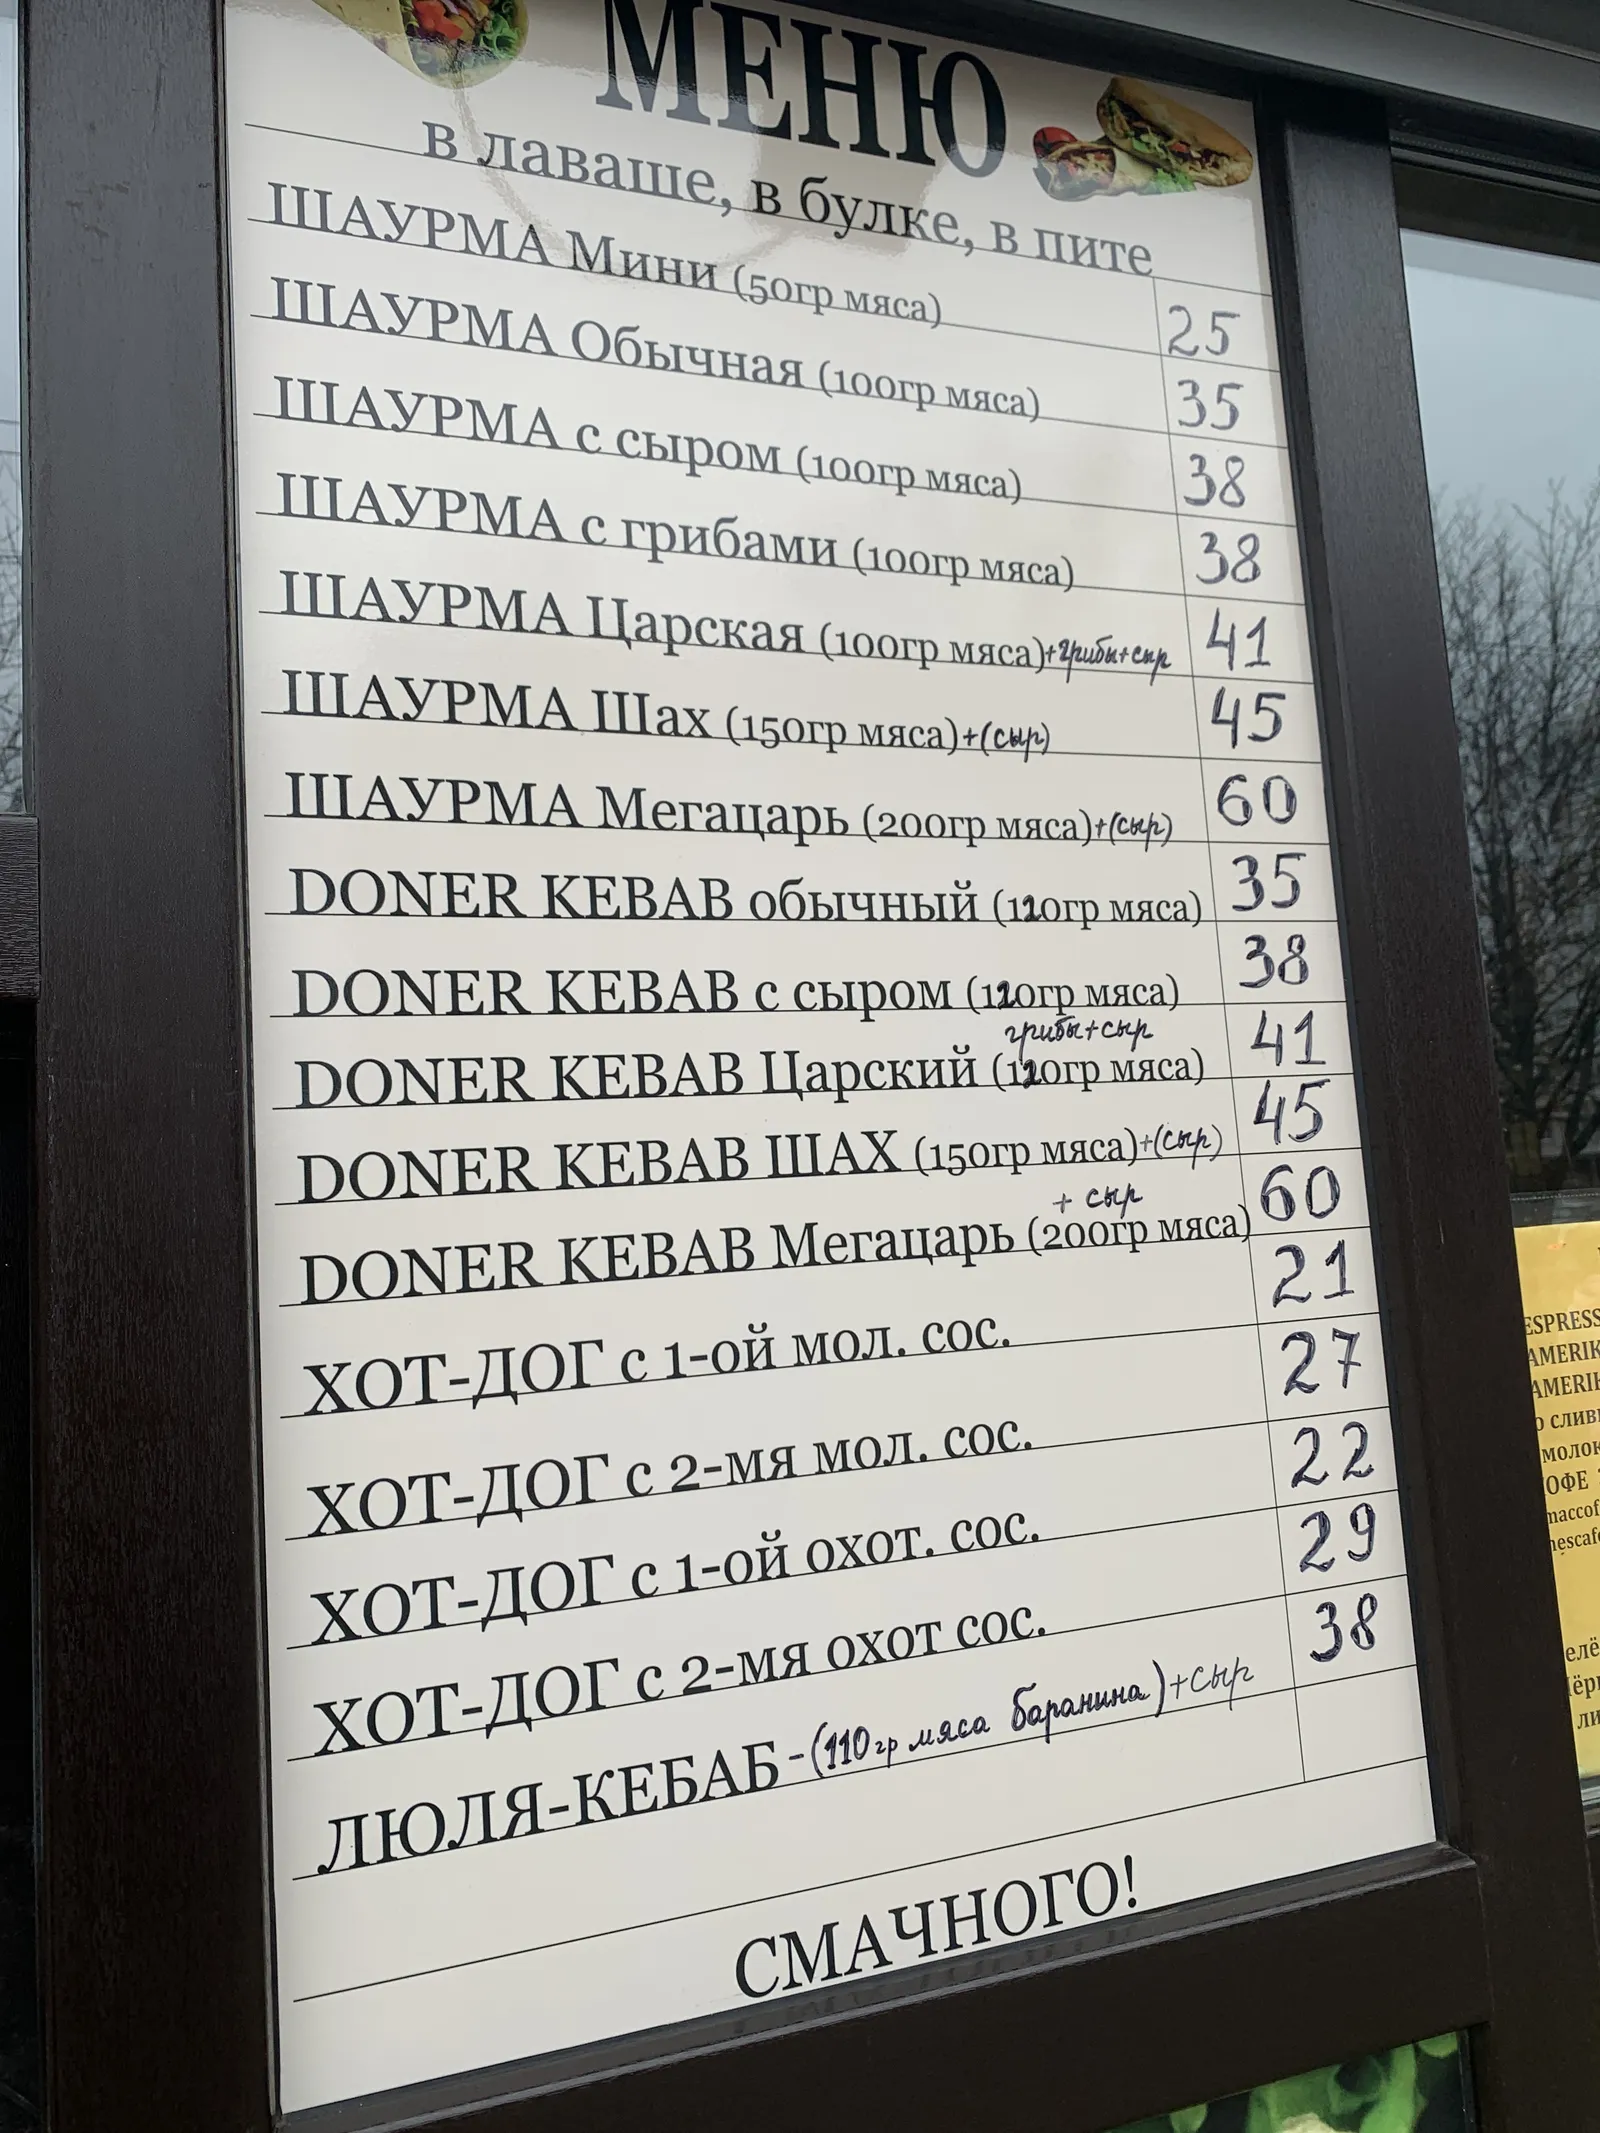 МЕНЮ
в лаваше, в булке, в пите
ШАУРМА Мини (50гр мяса) 25
ШАУРМА Обычная (100гр мяса) 35
ШАУРМА с сыром (100гр мяса) 38
ШАУРМА с грибами (100гр мяса) 38
ШАУРМА Царская (100гр мяса)+грибы+сыр 41
ШАУРМА Шах (150гр мяса)+(сыр) 45
ШАУРМА Мегацарь (200гр мяса)+(сыр) 60
DONER KEBAB обычный (120гр мяса) 35
DONER KEBAB с сыром (120гр мяса) 38
грибы+сыр
DONER KEBAB Царский (120гр мяса) 41
DONER KEBAB ШАХ (150гр мяса)+(сыр) 45
+ сыр
DONER KEBAB Мегацарь (200гр мяса) 60
ХОТ-ДОГ с 1-ой мол. сос. 21
ХОТ-ДОГ с 2-мя мол. сос. 27
ХОТ-ДОГ с 1-ой охот. сос. 22
ХОТ-ДОГ с 2-мя охот сос. 29
ЛЮЛЯ-КЕБАБ-(110гр мяса баранина)+сыр 38
СМАЧНОГО!